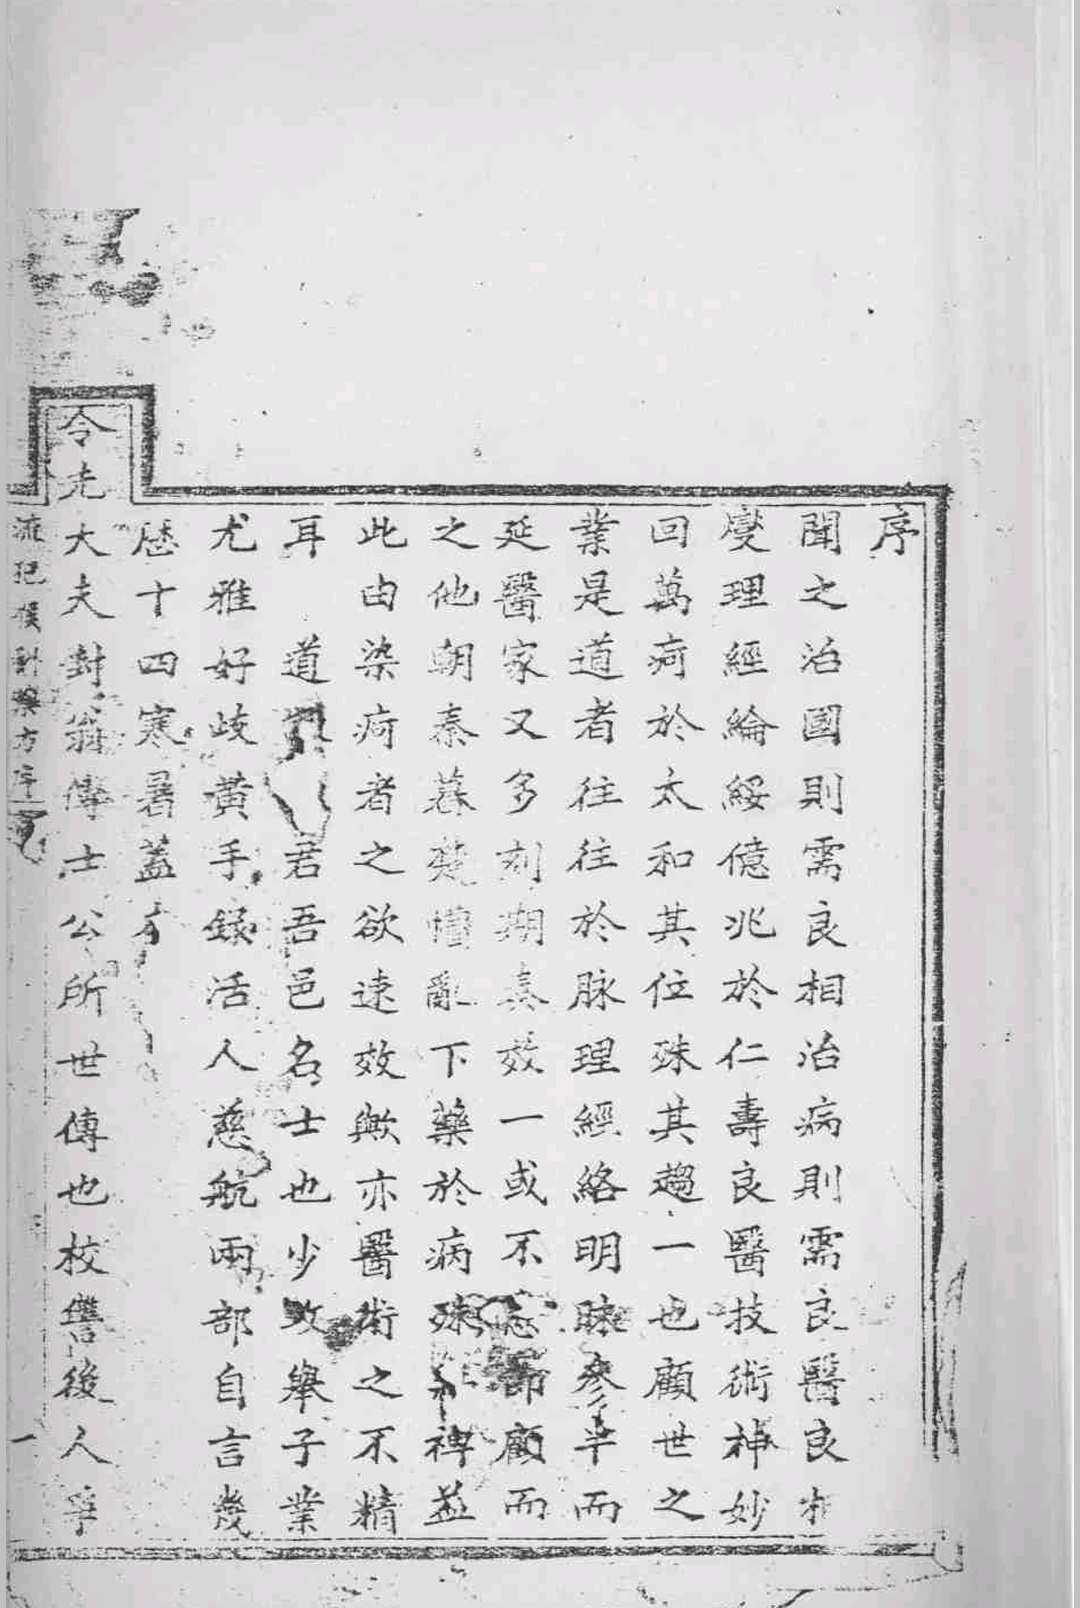 序
聞之治國則需良相治病則需良醫良相
燮理經綸綏億兆於仁壽良醫技術神妙
回萬疴於太和其位殊其趨一也顧世之
業是道者往往於脉理經絡明昧參半而
延醫家又多刻期奏效一或不 卽顧而
之他朝秦暮楚懵亂下藥於病殊 裨益
此由染疴者之欲速效歟亦醫術之不精
耳 道 君吾邑名士也少攻舉子業
尤雅好歧黃手錄活人慈航兩部自言幾
歷十四寒暑蓋
令先大夫封翁 士公所世傳也校讐後人爭
流 方序 一